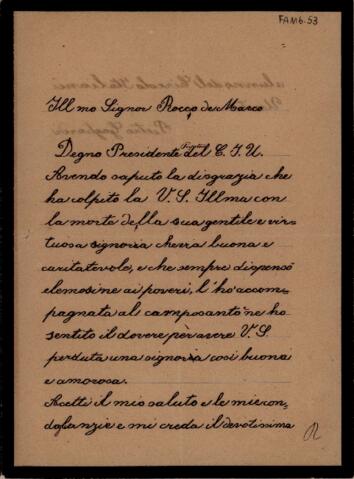 FAM6.53
Illmo Signor Rocco de Marco
Degno Presidente del C. I. U.
Avendo saputo la disgrazia che
ha colpito la V. S. Illma con
la morte della sua gentile e vir-
tuosa signora ch'era buona e
caritatevole, e che sempre dispensò
elemosine ai poveri, l'hò accom-
pagnata al camposanto ne ho
sentito il dovere per avere V. S.
perduta una signora così buona
e amorosa.
Accetti il mio saluto e le mie con-
doglianzie e mi creda il devotissimo